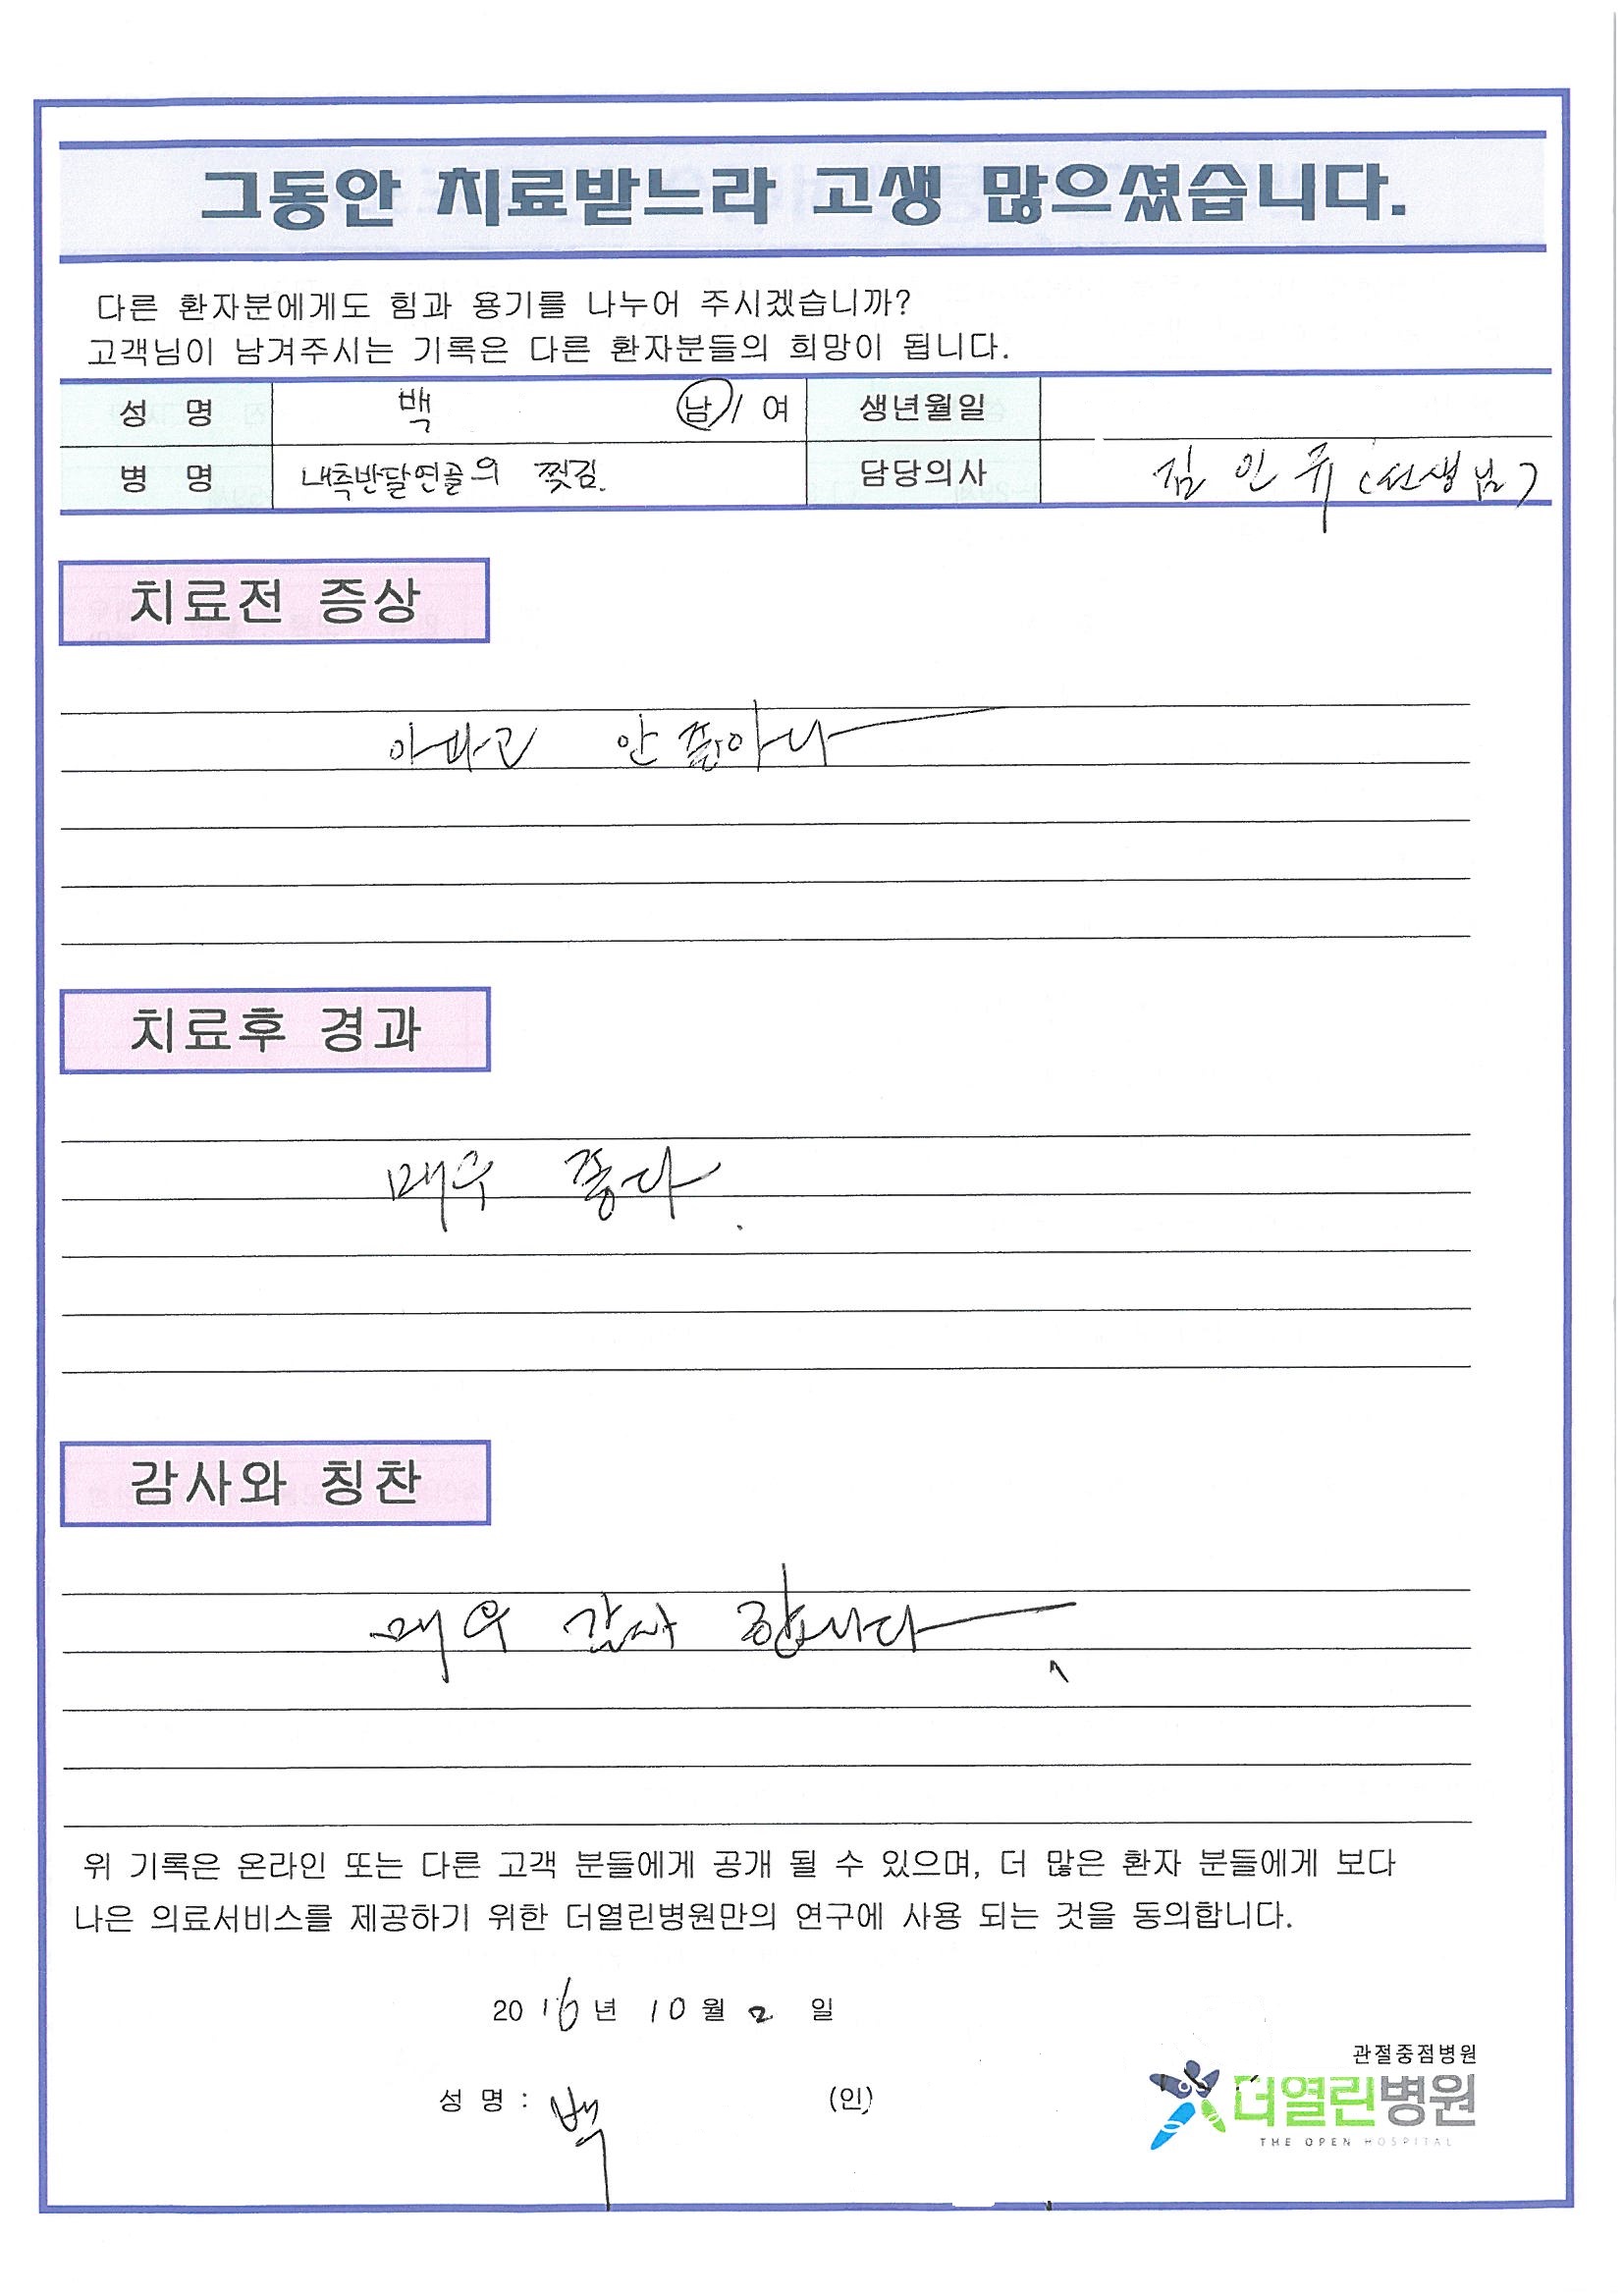 그동안 치료받느라 고생 많으셨습니다.
다른 환자분에게도 힘과 용기를 나누어 주시겠습니까?
고객님이 남겨주시는 기록은 다른 환자분들의 희망이 됩니다.
성 명 백 남 / 여 생년월일
병 명 내측반달연골의 찢김. 담당의사 김인규 (선생님)
치료전 증상
아프고 안 좋아
치료후 경과
매우 좋다.
감사와 칭찬
매우 감사 합니다
위 기록은 온라인 또는 다른 고객 분들에게 공개 될 수 있으며, 더 많은 환자 분들에게 보다
나은 의료서비스를 제공하기 위한 더열린병원만의 연구에 사용 되는 것을 동의합니다.
2016년 10월 2 일
성 명 : 백 (인)
관절중점병원
더열린병원
THE OPEN HOSPITAL